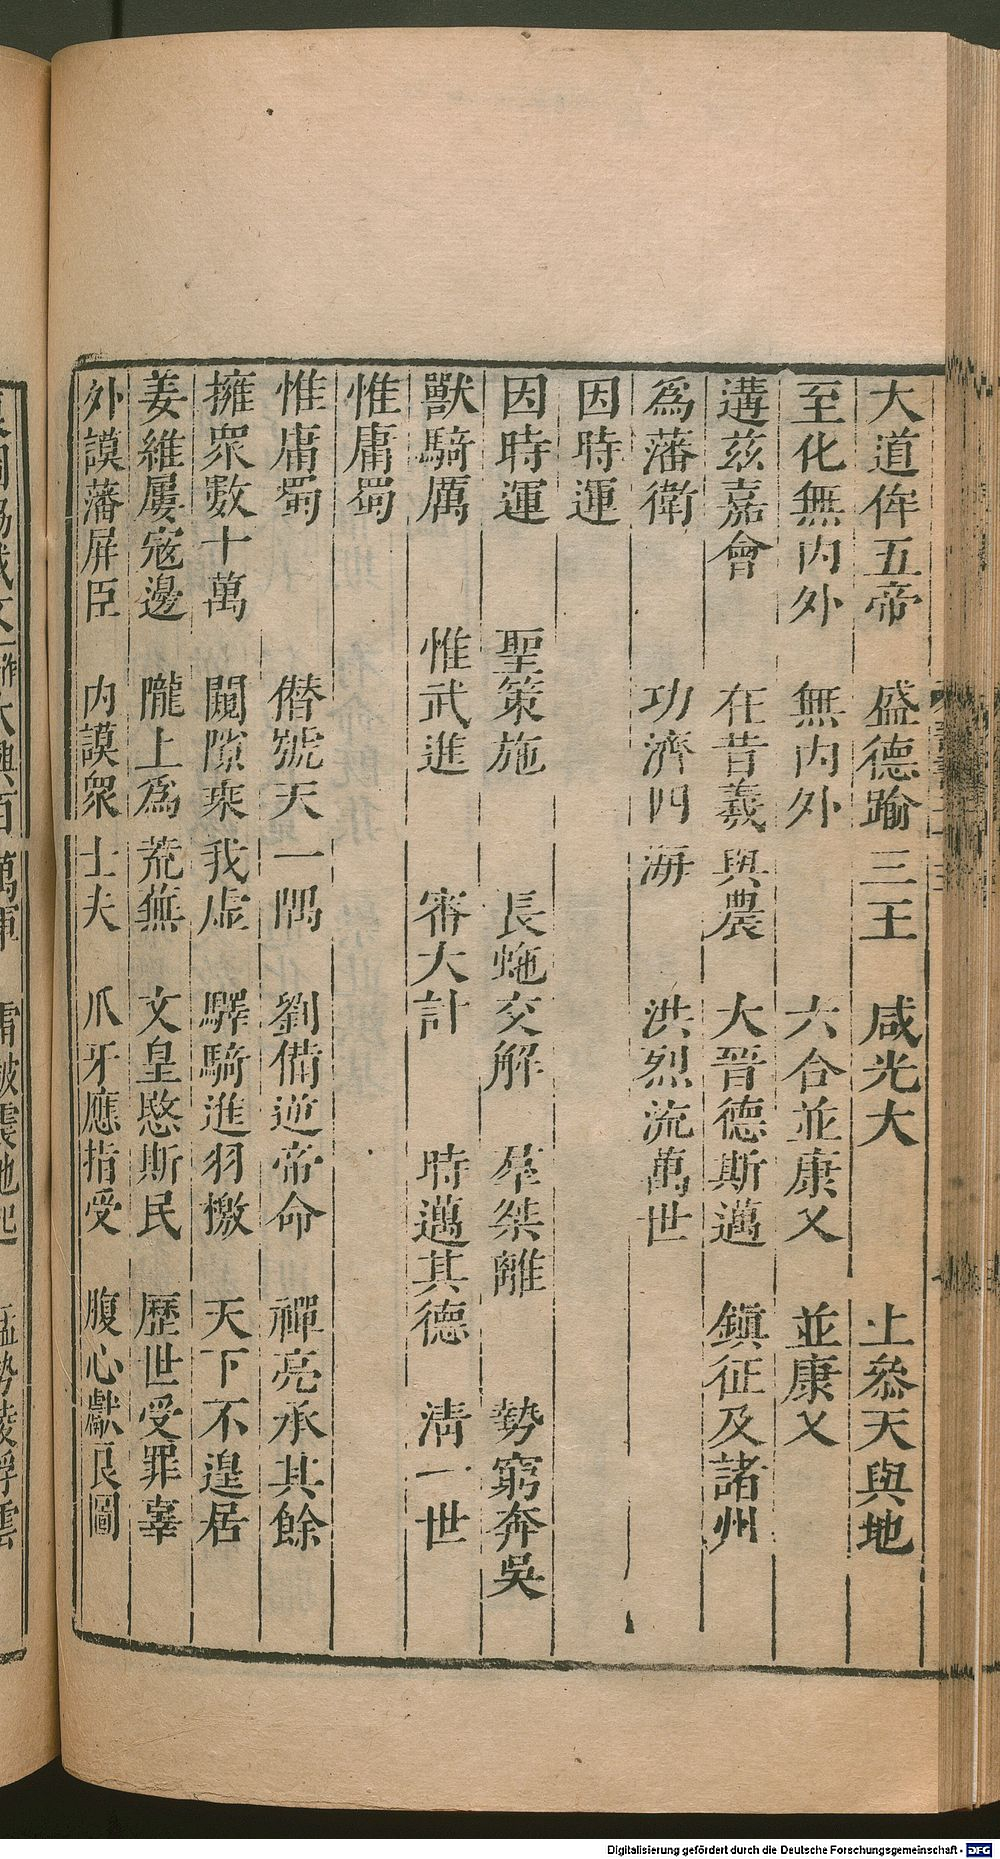 大道侔五帝　盛德踰三王　咸光大　上參天與地
至化無內外　無內外　六合並康乂　並康乂
遘茲嘉會　在昔羲與農　大晉德斯邁　鎮征及諸州
為藩衛　功濟四海　洪烈流萬世
因時運
因時運　聖策施　長虵交解　羣桀離　勢窮奔吳
獸騎厲　惟武進　審大計　時邁其德　清一世
惟庸蜀
惟庸蜀　僭號天一隅　劉備逆帝命　禪亮承其餘
擁眾數十萬　闚隙乘我虛　驛騎進羽檄　天下不遑居
姜維屢寇邊　隴上為荒蕪　文皇愍斯民　歷世受罪辜
外謨藩屏臣　內謀眾士夫　爪牙應指受　腹心獻良圖
Digitalisierung gefördert durch die Deutsche Forschungsgemeinschaft - DFG